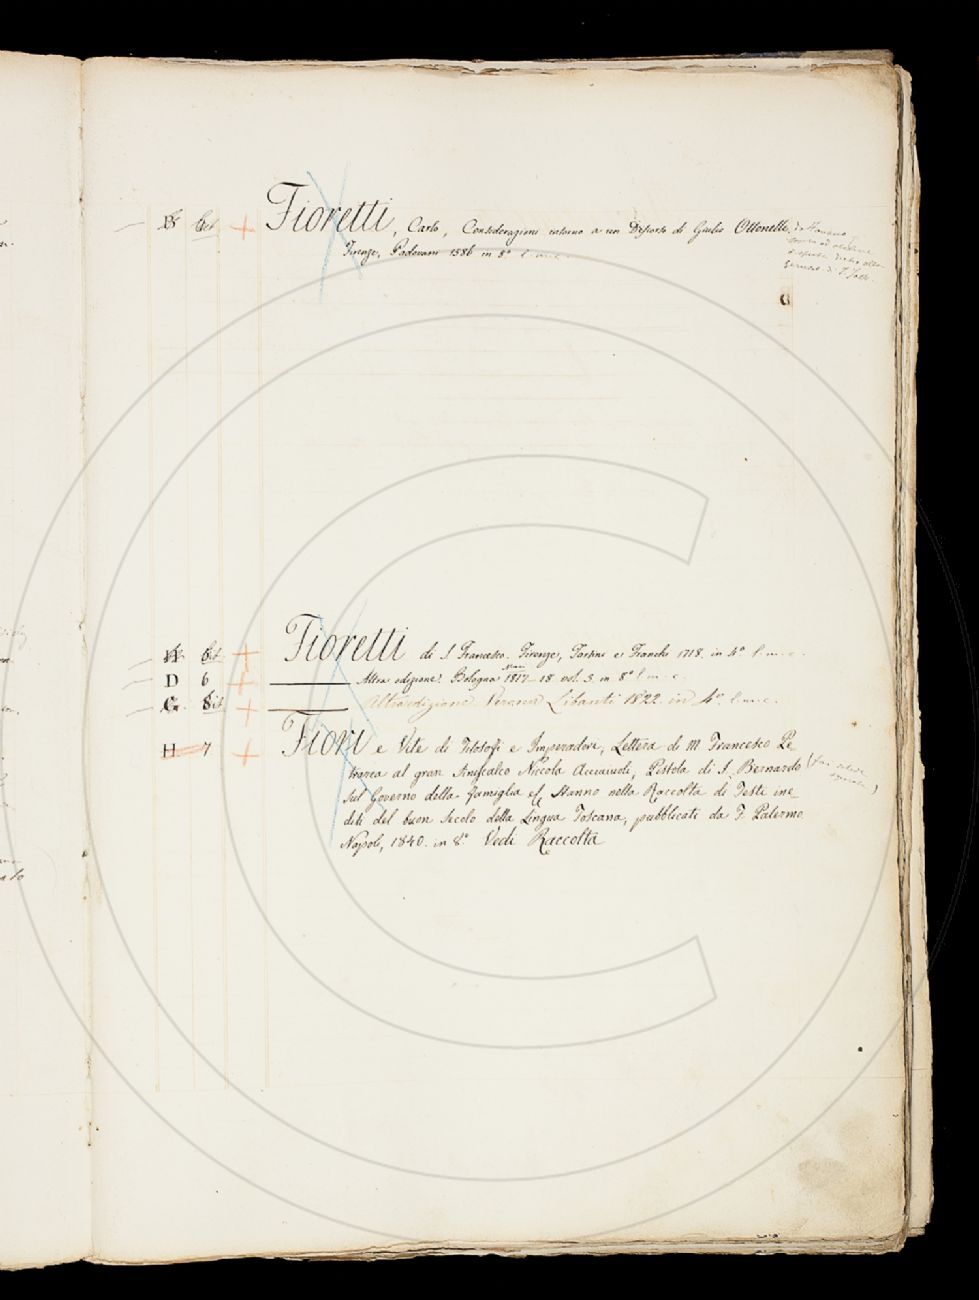 Fioretti, Carlo, Considerazioni intorno a un Discorso di Giulio Ottonelli
Firenze, Padovani 1586 in 8°
H Fioretti di S. Francesco. Firenze, Tartini e Franchi 1718. in 4°
D 6 Altra edizione. Bologna 1817-18 vol. 3. in 8°
Altra edizione Verona Libanti 1822. in 4°
H 7 Fiori e Vite di Filosofi e Imperadori, Lettera di M. Francesco Pe
trarca al gran Siniscalco Niccola Acciaiuoli, Pistola di S. Bernardo
sul Governo della famiglia ec. Stanno nella Raccolta di Testi ine_
diti del buon Secolo della Lingua Toscana, pubblicati da F. Palermo.
Napoli, 1840. in 8.° Vedi Raccolta